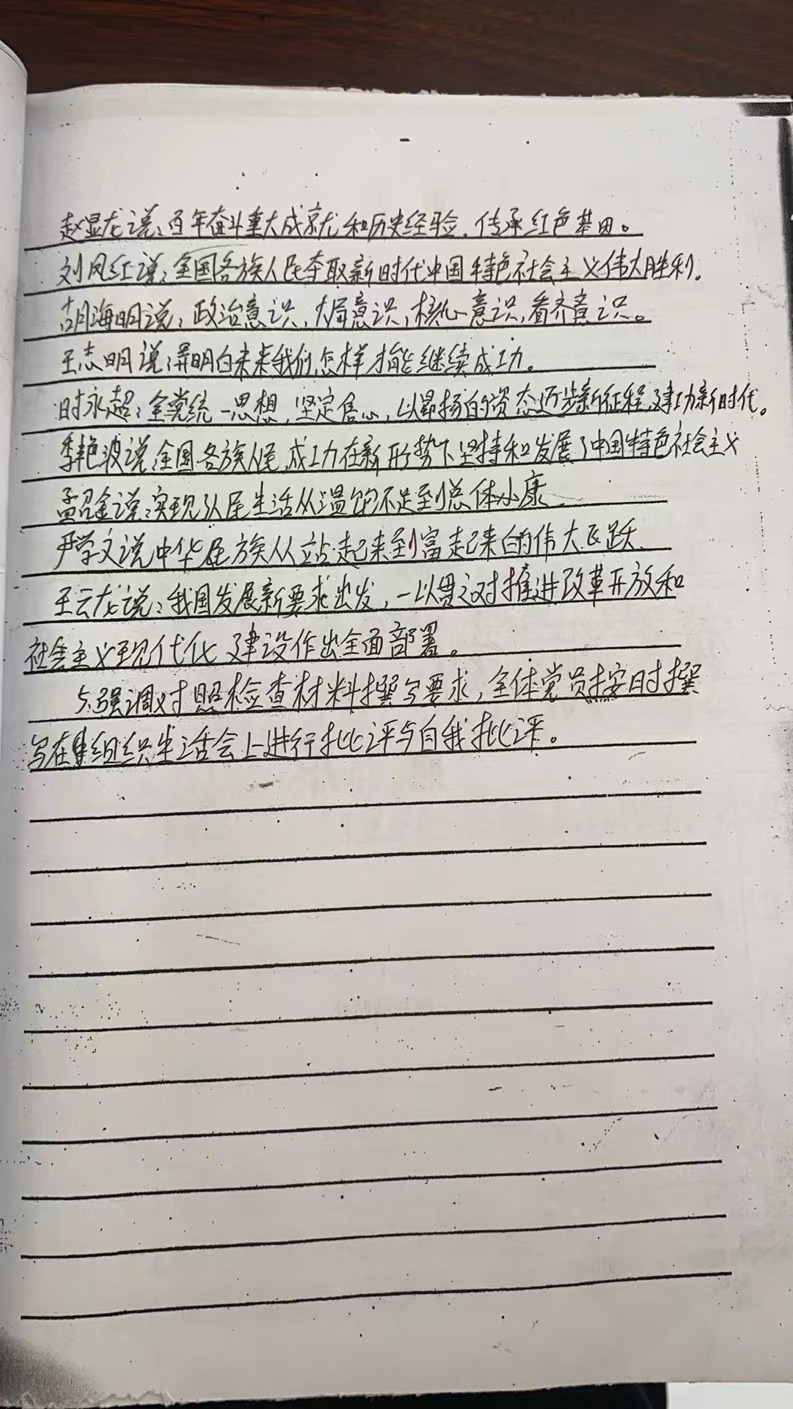 赵显龙说：百年奋斗重大成就和历史经验，传承红色基因。
刘凤红说：全国各族人民夺取新时代中国特色社会主义伟大胜利。
胡海明说：政治意识、大局意识、核心意识，看齐意识。
王志明说：弄明白未来我们怎样才能继续成功。
时永超：全党统一思想，坚定信心，以昂扬的姿态迈步新征程，建功新时代。
季艳波说全国各族人民，成功在新形势下坚持和发展了中国特色社会主义
孟召金说：实现人民生活从温饱不足到总体小康
尹学文说中华民族从站起来到富起来的伟大飞跃
王云龙说：我国发展新要求出发，一以贯之对推进改革开放和
社会主义现代化建设作出全面部署。
5.强调对照检查材料撰写要求，全体党员按时撰
写在组织生活会上进行批评与自我批评。